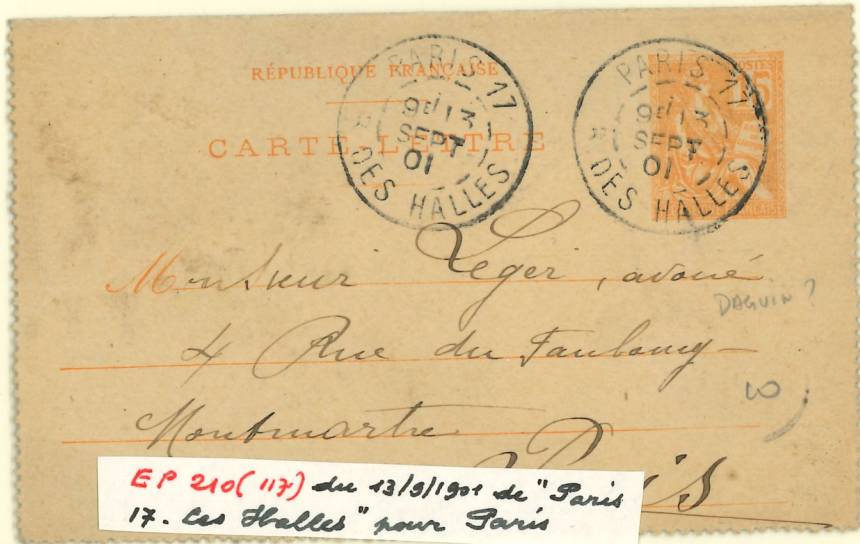 RÉPUBLIQUE FRANÇAISE
CARTE-LETTRE
PARIS 17
9E 13
SEPT
01
R. DES HALLES
PARIS 17
9E 13
SEPT
01
R. DES HALLES
POSTES
15
Monsieur Leger, avoué
DAGUIN?
4 Rue du Faubourg-
Montmartre
Paris
EP 210 (117) du 13/9/1901 de "Paris
17. Les Halles" pour Paris